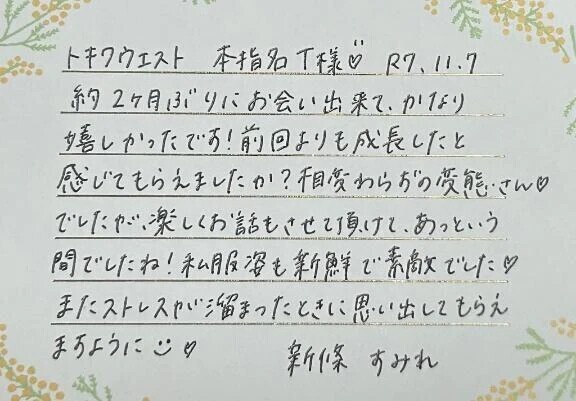 トキワウエスト 本指名 T様♡ R7.11.7
約2ヶ月ぶりにお会い出来て、かなり
嬉しかったです!前回よりも成長したと
感じてもらえましたか?相変わらずの変態さん♡
でしたが、楽しくお話もさせて頂けて、あっという
間でしたね!私服姿も新鮮で素敵でした♡
またストレスが溜まったときに思い出してもらえ
ますように☺♡ 新條 すみれ